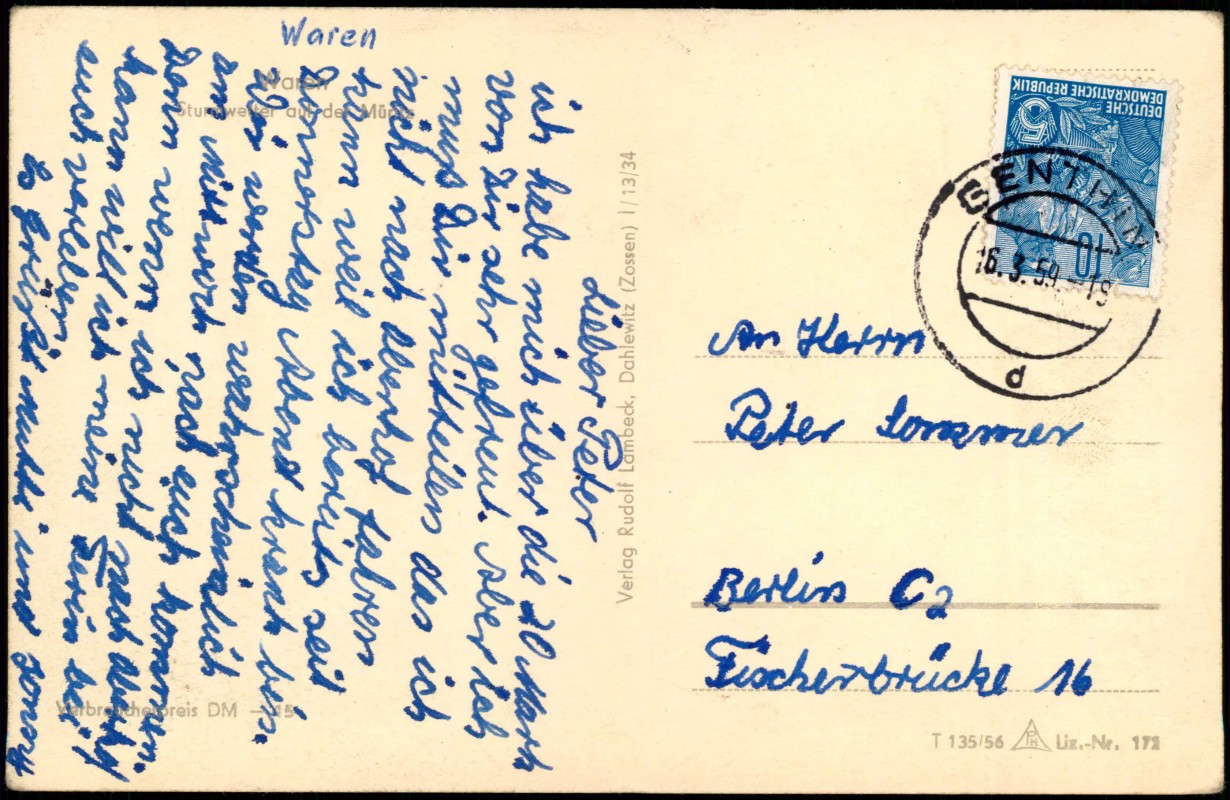 Waren
Waren
Sturmwetter auf der Müritz
Lieber Peter
ich habe mich über die 20 Mark
von Dir sehr gefreut. Aber ich
muß Dir mitteilen das ich
nicht nach Abenhof fahren
kann weil ich bereits seit
Donnerstag Abend krank bin.
Wir werden wahrscheinlich
nach euch kommen
Denn wenn ich nicht nach
kann will ich meine Ferien bei
euch verleben.
Es grüßt mutti und Conny
Verbraucherpreis DM –.15
Verlag Rudolf Lambeck, Dahlewitz (Zossen) I/13/34
DEUTSCHE
DEMOKRATISCHE REPUBLIK
5
10
GENTHIN
16.3.59.-19
d
An Herrn
Peter Sommer
Berlin C2
Fischerbrücke 16
T 135/56 PH Liz.-Nr. 172